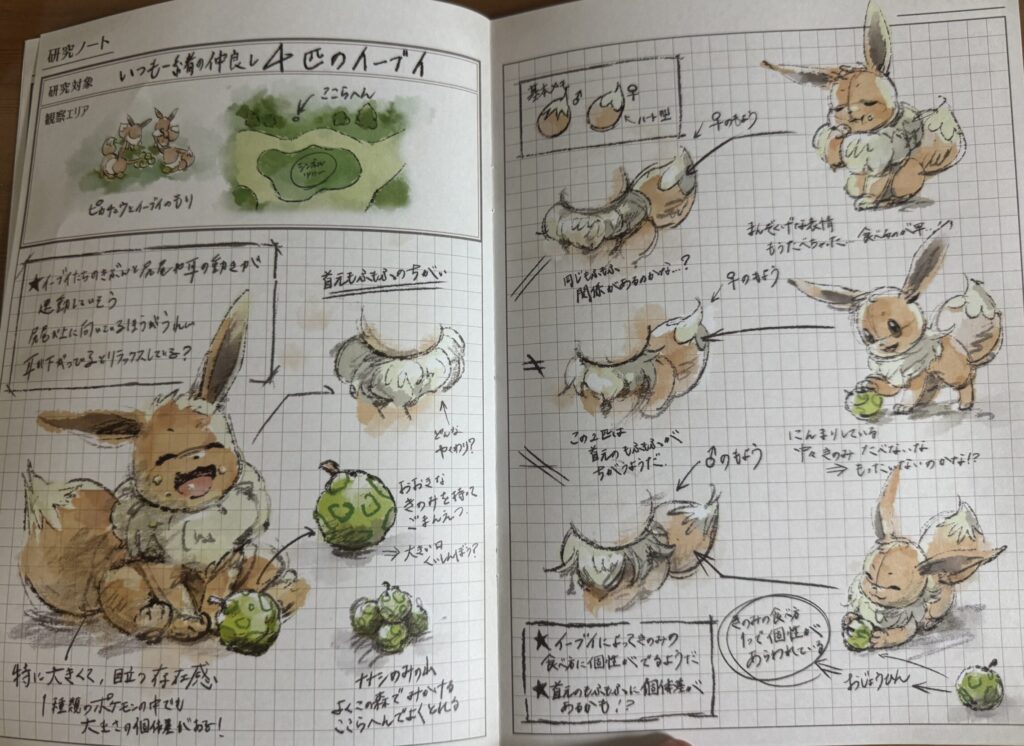 研究ノート
研究対象
いつも一緒の仲良し4匹のイーブイ
観察エリア
ここらへん
シンボル
ツリー
ピカチュウとイーブイのもり
★イーブイたちのきぶんと尻尾や耳の動きが
連動していそう
尻尾が上に向いているほうがうれしい
耳が下がっているとリラックスしている?
首元もふもふのちがい
どんな
やくわり?
おおきな
きのみを持って
ごまんえつ
⇒大きい口
くいしんぼう?
特に大きくて、目立つ存在感
1種類のポケモンの中でも
大きさの個体差がある!
ナナシのみの山
よくこの森でみかける
ここらへんでよくとれる
基本メモ
♂
♀
ハート型
♀のもよう
まんぞくげな表情
もうたべちゃった… 食べるのが早…
同じもふもふ
関係があるのかな…?
♀のもよう
この2匹は
首元のもふもふが
ちがうようだ。
にんまりしている
中々きのみたべないな
⇒もったいないのかな!?
♂のもよう
きのみの食べ方
1つで個性が
あらわれている
おじょうひん
★イーブイによってきのみの
食べ方に個性がでるようだ
★首元のもふもふに個体差が
あるかも!?